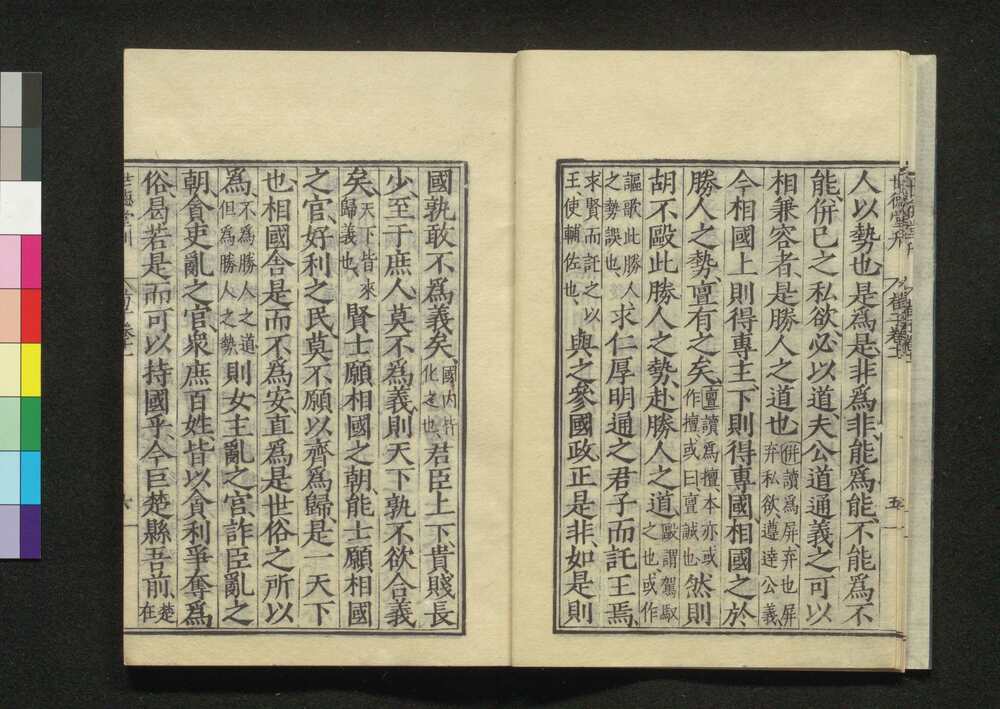 世德堂刊
五
人以勢也、是爲是、非爲非、能爲能、不能爲不
能、併己之私欲、必以道、夫公道通義之可以
相兼容者、是勝人之道也、併讀爲屏弃也屏弃私欲、遵達公義、
今相國上則得專主、下則得專國、相國之於
勝人之勢、亶有之矣、亶讀爲擅本亦或作擅或曰亶誠也、然則
胡不毆此勝人之勢、赴勝人之道、毆謂駕馭之也或作
謳歌此勝人之勢誤也、求仁厚明通之君子而託王焉、
求賢而託之以王使輔佐也、與之參國政、正是非、如是則
國孰敢不爲義矣、國内皆化之也、君臣上下、貴賤長
少、至于庶人、莫不爲義、則天下孰不欲合義
矣、天下皆來歸義也、賢士願相國之朝、能士願相國
之官、好利之民、莫不願以齊爲歸、是一天下
也、相國舍是而不爲、安直爲是世俗之所以
爲、不爲勝人之道但爲勝人之勢、則女主亂之宮、詐臣亂之
朝、貪吏亂之官、衆庶百姓、皆以貪利爭奪爲
俗、曷若是而可以持國乎、今巨楚縣吾前、楚在
世德堂刊